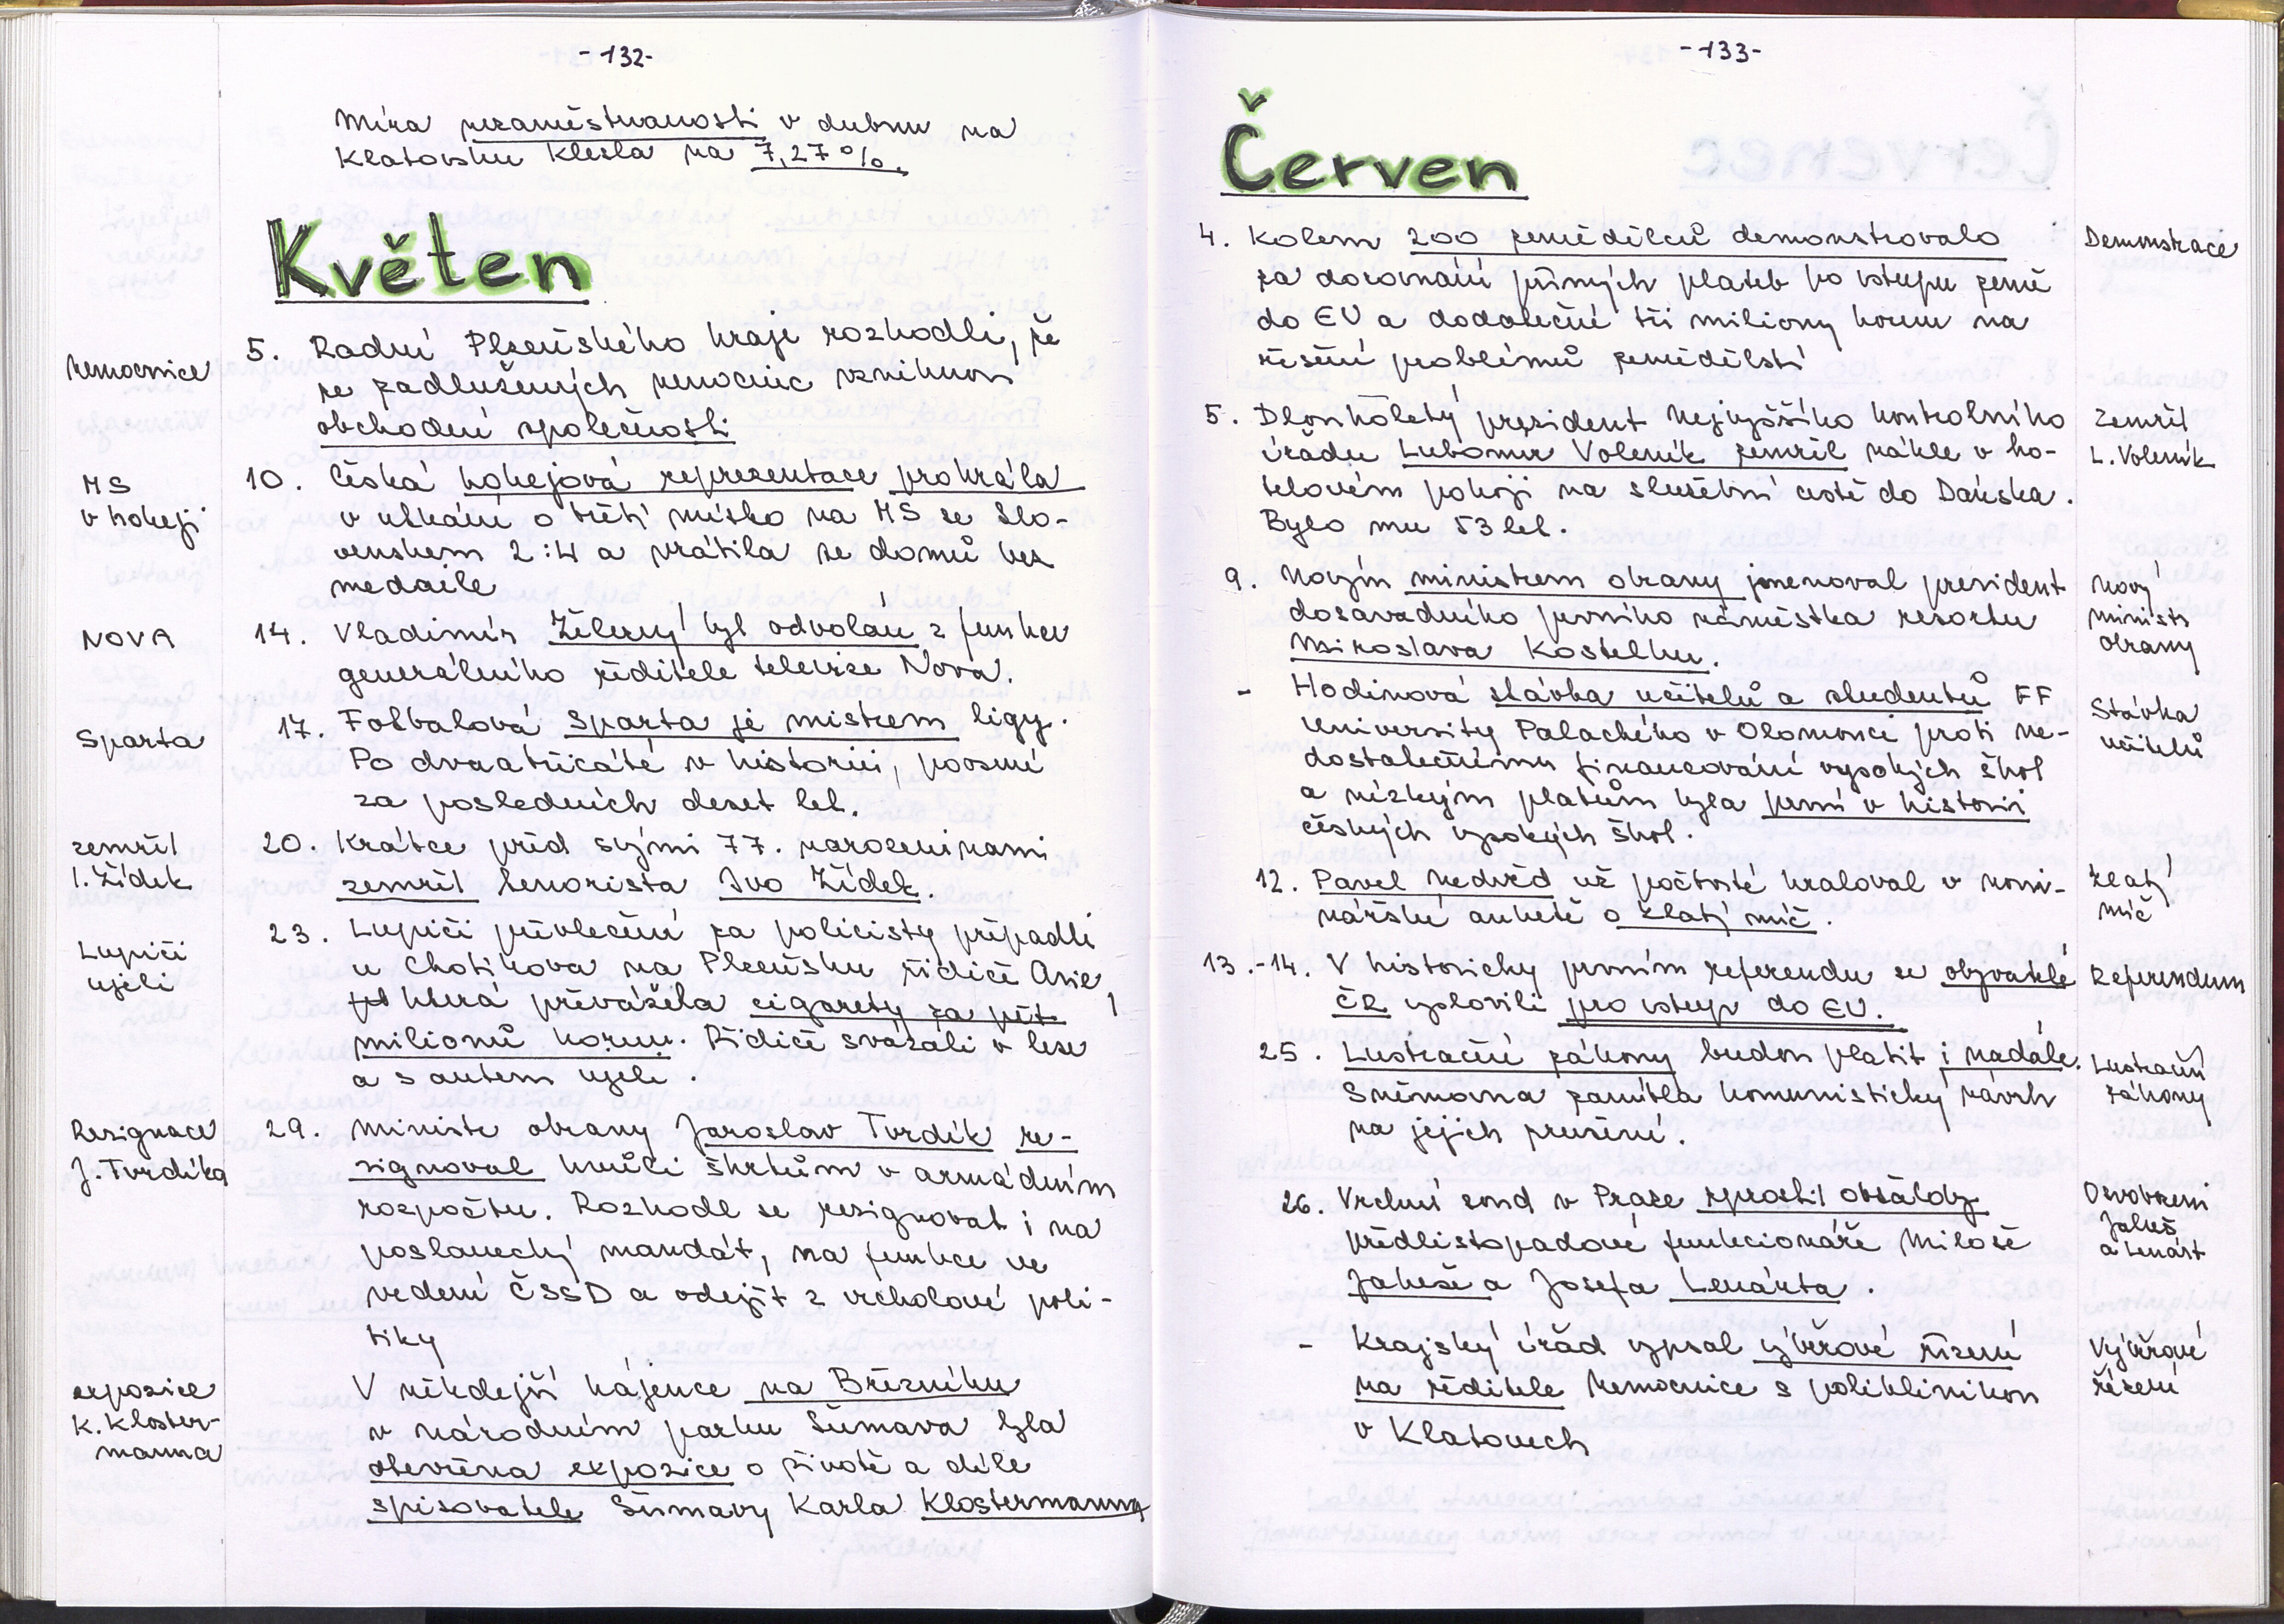 -132-
Míra nezaměstnanosti v dubnu na
Klatovsku klesla na 7,27%.
Květen
Nemocnice
5. Radní Plzeňského kraje rozhodli, že
ze zadlužených nemocnic vzniknou
obchodní společnosti
MS
v hokeji
10. Česká hokejová reprezentace prohrála
v utkání o třetí místo na MS se Slo-
venskem 2:4 a vrátila se domů bez
medaile
NOVA
14. Vladimír Železný byl odvolán z funkce
generálního ředitele televize Nova.
Sparta
17. Fotbalová Sparta je mistrem ligy.
Po dvaatřicáté v historii, poosmé
za posledních deset let.
zemřel
I. Žídek
20. Krátce před svými 77. narozeninami
zemřel tenorista Ivo Žídek.
Lupiči
ujeli
23. Lupiči převlečení za policisty přepadli
u Chotíkova na Plzeňsku řidiče Avie,
která převážela cigarety za pět
milionů korun. Řidiče svázali v lese
a s autem ujeli.
Resignace
J. Tvrdíka
29. Ministr obrany Jaroslav Tvrdík re-
zignoval kvůli škrtům v armádním
rozpočtu. Rozhodl se rezignovat i na
poslanecký mandát, na funkce ve
vedení ČSSD a odejít z vrcholové poli-
tiky
expozice
K. Kloster-
manna
V někdejší hájence na Březníku
v národním parku Šumava byla
otevřena expozice o životě a díle
spisovatele Šumavy Karla Klostermanna
-133-
Červen
4. Kolem 200 zemědělců demonstrovalo
za dorovnání přímých plateb po vstupu země
do EU a dodatečné tři miliony korun na
řešení problémů zemědělství
Demonstrace
5. Dlouholetý president Nejvyššího kontrolního
úřadu Lubomír Voleník zemřel náhle v ho-
telovém pokoji na služební cestě do Dánska.
Bylo mu 53 let.
Zemřel
L. Voleník
9. Novým ministrem obrany jmenoval president
dosavadního prvního náměstka resortu
Miroslava Kostelku.
Nový
ministr
obrany
- Hodinová stávka učitelů a studentů FF
University Palackého v Olomouci proti ne-
dostatečnému financování vysokých škol
a nízkým platům byla první v historii
českých vysokých škol.
Stávka
učitelů
12. Pavel Nedvěd už počtvrté kraloval v novi-
nářské anketě o Zlatý míč.
Zlatý
míč
13.-14. V historicky prvním referendu se obyvatelé
ČR vyslovili pro vstup do EU.
Referendum
25. Lustrační zákony budou platit i nadále.
Sněmovna zamítla komunistický návrh
na jejich zrušení.
Lustrační
zákony
26. Vrchní soud v Praze zprostil obžaloby
předlistopadové funkcionáře Miloše
Jakeše a Josefa Lenárta.
Osvobozeni
Jakeš
a Lenárt
- Krajský úřad vypsal výběrové řízení
na ředitele Nemocnice s poliklinikou
v Klatovech
Výběrové
řízení